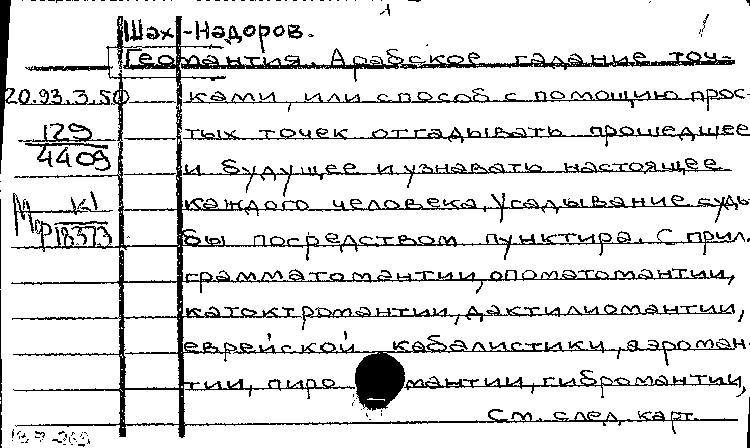 Шах-Надоров.
Геомантия. Арабское гадание точ-
20.93.3.50 ками, или способ с помощию прос-
129 тых точек отгадывать прошедшее
4409 и будущее и узнавать настоящее
К1 каждого человека. Усадывание судь
18373 бы посредством пунктира. С прил.
грамматомантии, опоматомантии,
катоктромантии, дактилиомантии,
еврейской кабалистики, аэроман-
тии, пиромантии, гибромантии,
См. след. карт.